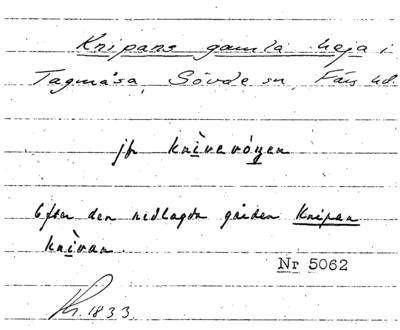 Knipans gamla heja i
Tagmåsa, Sövde sn, Färs hd.
jfr knìvevóŋen
Efter den nedlagda gården Knipan
knìvan.
Nr 5062
1833